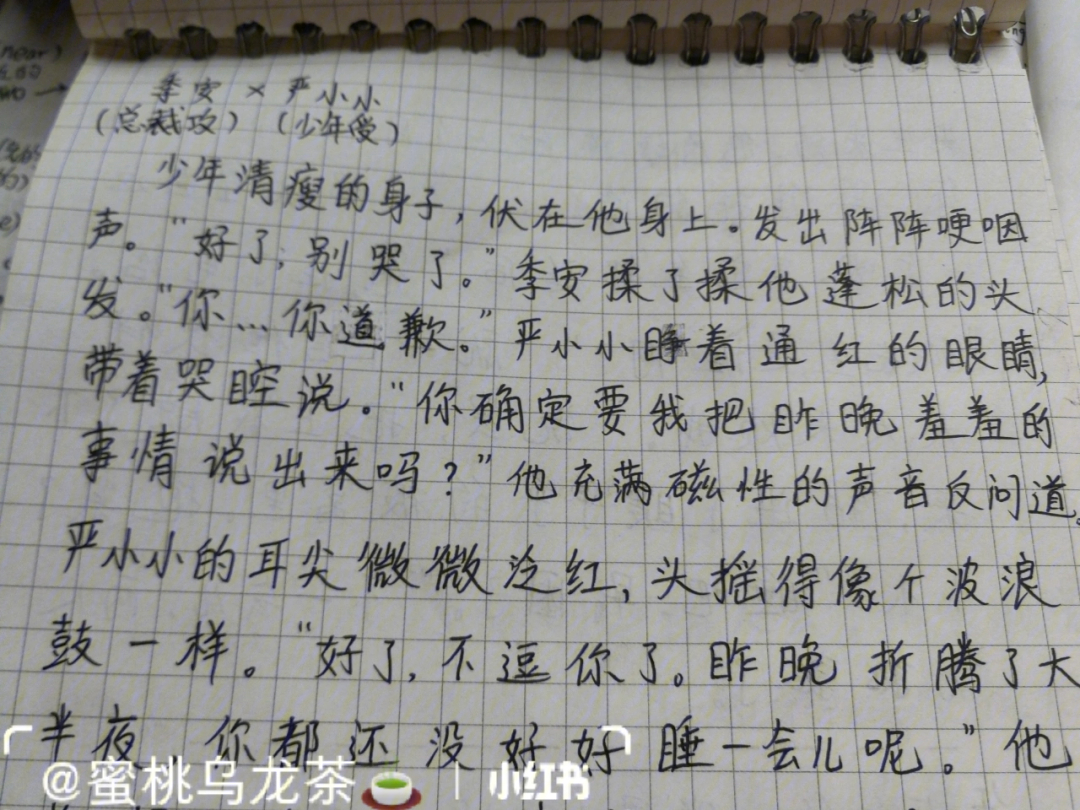 季安 × 严小小
(总裁攻) (少年受)
少年清瘦的身子,伏在他身上。发出阵阵哽咽
声。“好了,别哭了。”季安揉了揉他蓬松的头
发。“你...你道歉。”严小小睁着通红的眼睛,
带着哭腔说。“你确定要我把昨晚羞羞的
事情说出来吗?”他充满磁性的声音反问道。
严小小的耳尖微微泛红,头摇得像个波浪
鼓一样。“好了,不逗你了。昨晚折腾了大
半夜,你都还没好好睡一会儿呢。”他
@蜜桃乌龙茶🍵 | 小红书
near)